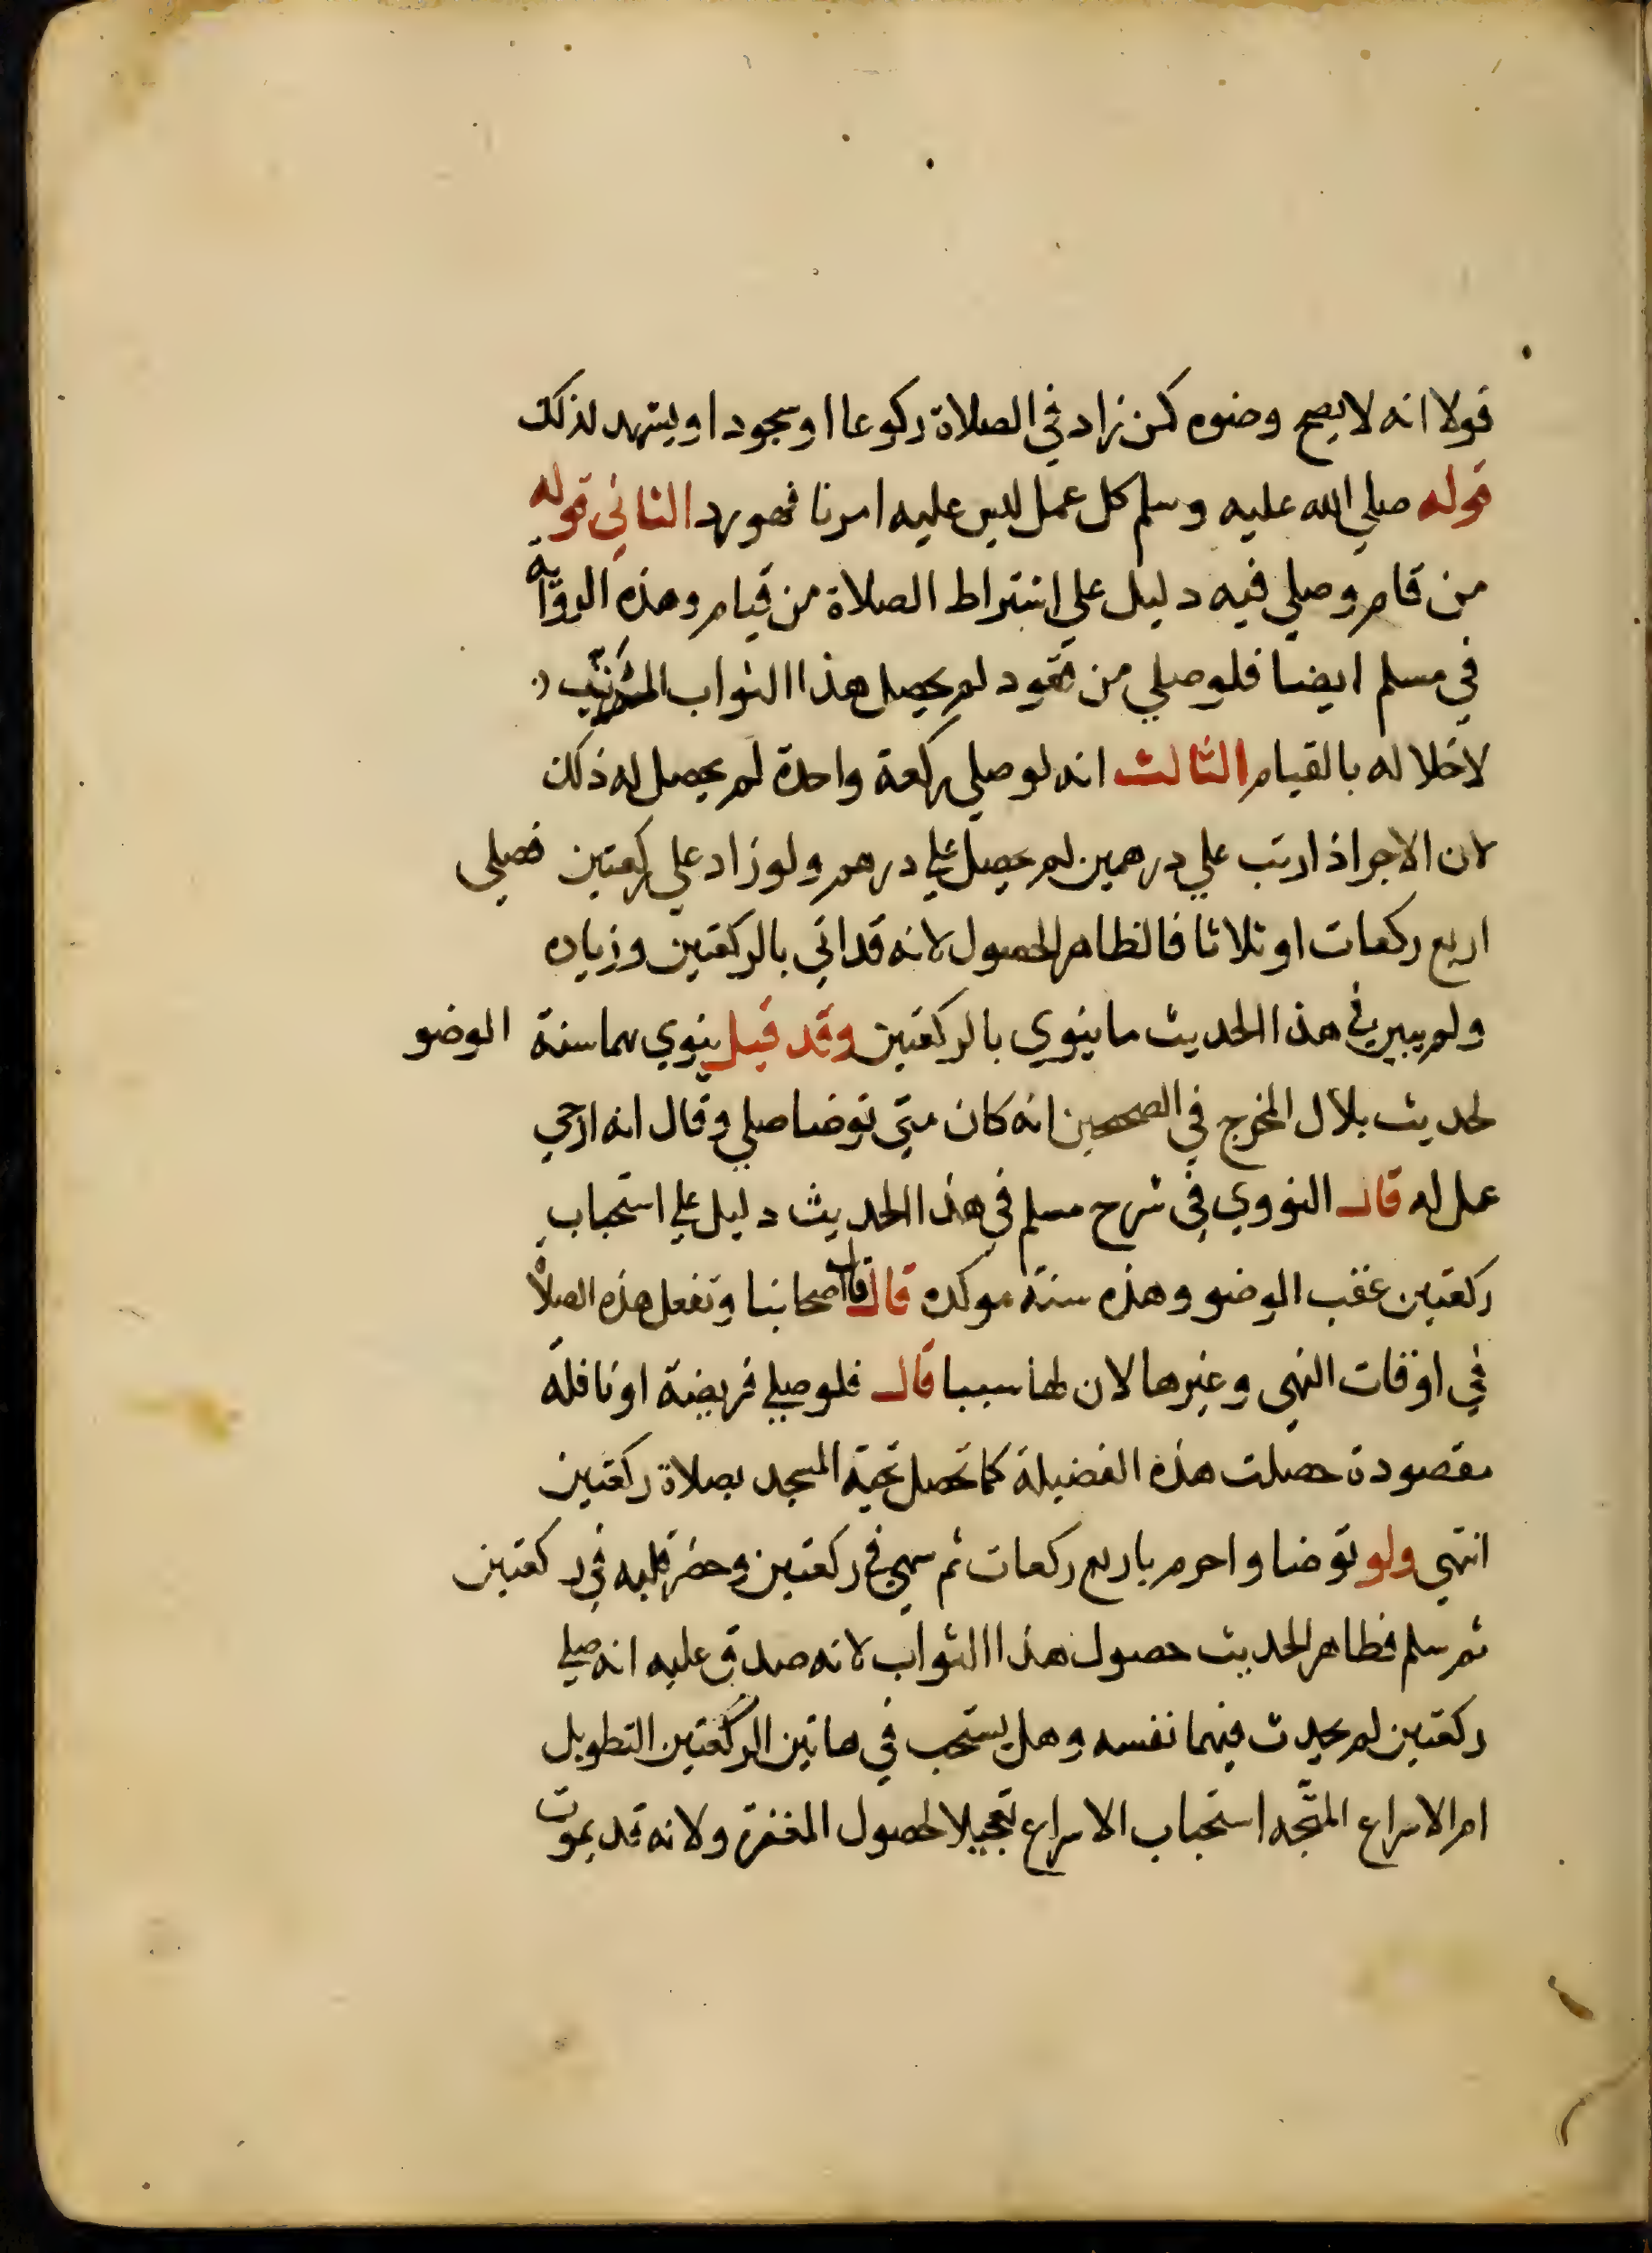 قولا انه لا يصح وضوه كمن زاد في الصلاة ركوعا او سجودا ويشهد لذلك
قوله صلي الله عليه وسلم كل عمل ليس عليه امرنا فهو رد الثاني قوله
من قام وصلي فيه دليل علي اشتراط الصلاة من قيام وهذه الرواية
في مسلم ايضا فلو صلي من قعود لم يحصل هذا الثواب المترتب
لاخلاله بالقيام الثالث انه لو صلي ركعة واحدة لم يحصل له ذلك
لان الاجر اذا رتب علي درهمين لم يحصل علي درهم ولو زاد علي ركعتين فصلي
اربع ركعات او ثلاثا فالظاهر الحصول لانه قد اتي بالركعتين وزياده
ولم يبين في هذا الحديث ما ينوي بالركعتين وقد قيل ينوي بهما سنة الوضو
لحديث بلال المخرج في الصحيحين انه كان متي توضا صلي وقال انه ارجي
عمل له قال النووي في شرح مسلم في هذا الحديث دليل علي استحباب
ركعتين عقب الوضو وهذه سنة موكده قال قال اصحابنا وتفعل هذه الصلاة
في اوقات النهي وغيرها لان لها سببا قال فلو صلي فريضة او نافلة
مقصودة حصلت هذه الفضيلة كما تحصل تحية المسجد بصلاة ركعتين
انتهي ولو توضا واحرم باربع ركعات ثم سهي في ركعتين وحضر قلبه في ركعتين
ثم سلم فظاهر الحديث حصول هذا الثواب لانه صدق عليه انه صلي
ركعتين لم يحدث فيهما نفسه وهل يستحب في هاتين الركعتين التطويل
ام الاسراع المتجه استحباب الاسراع تعجيلا لحصول المغفرة ولانه قد يموت